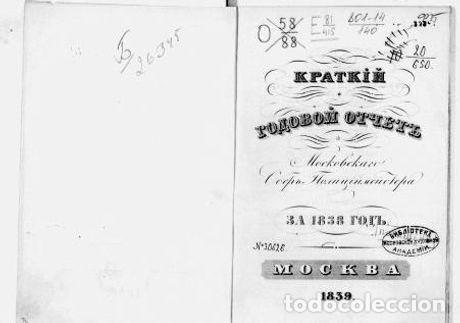 Б/26345
О 58/88
Е 81/415
801-14/140
20/650.
КРАТКІЙ
ГОДОВОЙ ОТЧЕТЪ
Московскаго
Оберъ-Полицімейстера
ЗА 1838 ГОДЪ.
№30626
БИБЛІОТЕКА
МОСКОВСКОЙ ДУХОВНОЙ
АКАДЕМІИ
МОСКВА
1839.
todocoleccion.net